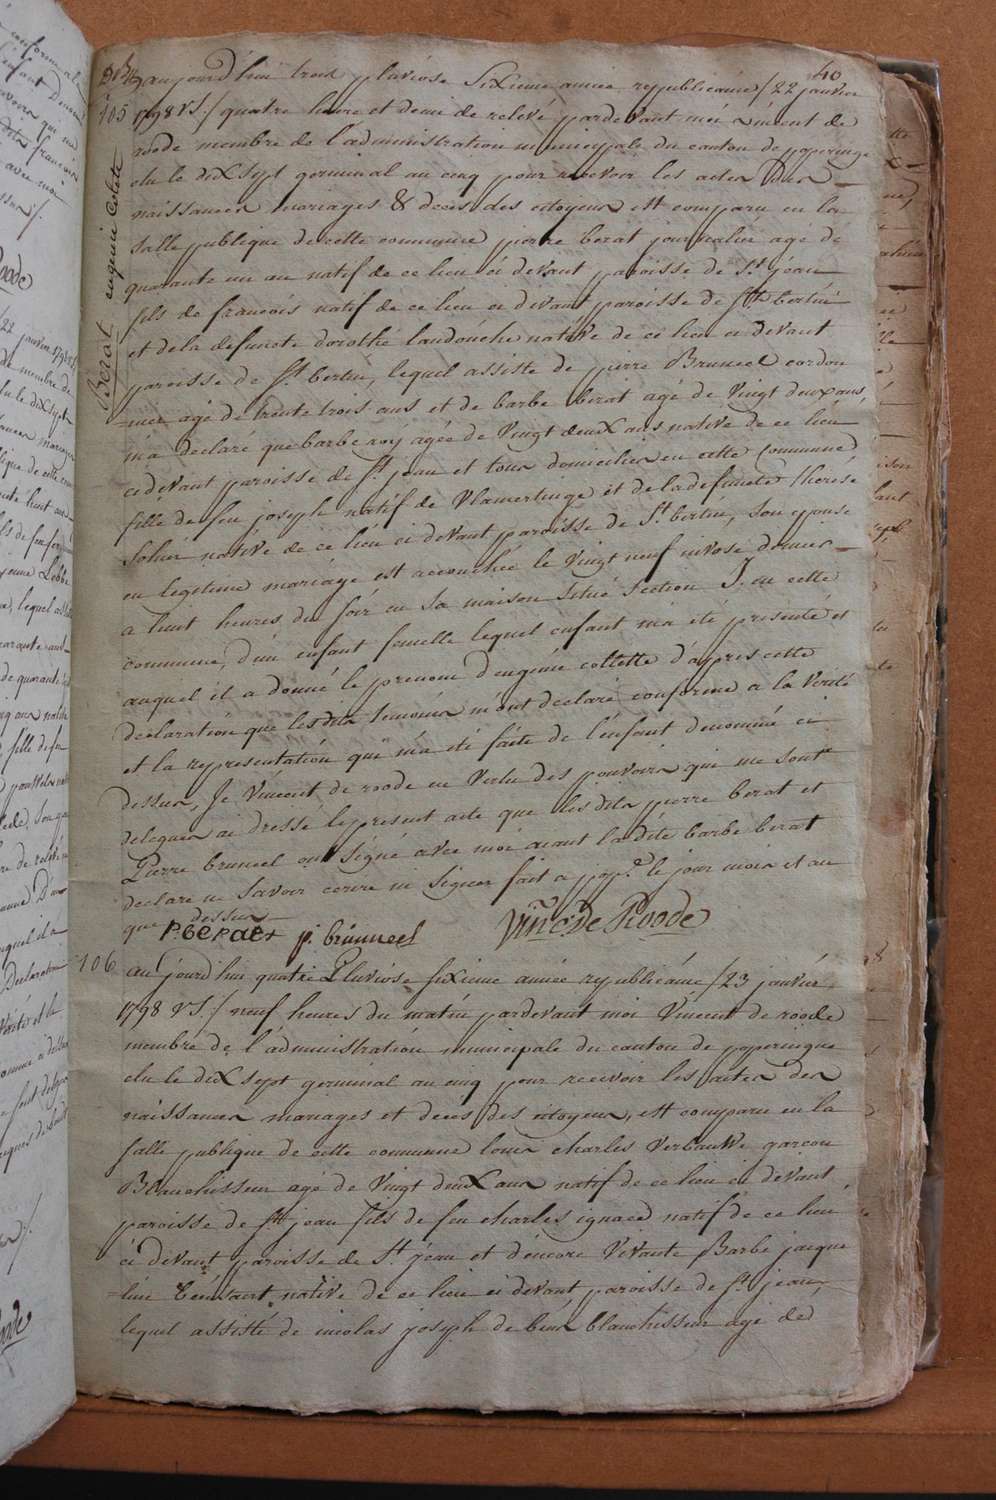 40
aujourd'hui trois pluviose sixieme année republicaine /22 janvier
105 1798 VS:/ quatre heure et demi de relevé pardevant moi vincent de
roode membre de l'administration municipale du canton de poperingue
elu le dix sept germinal an cinq pour recevoir les actes des
naissances mariages & deces des citoyens est comparu en la
salle publique de cette commune pierre berat journalier agé de
quarante un an natif de ce lieu ci devant paroisse de St jean
fils de francois natif de ce lieu ci devant paroisse de St bertin
et de la defuncte dorothé laudouche native de ce lieu ci devant
paroisse de St bertin, lequel assisté de pierre Bruneel cordon
=nier agé de trente trois ans et de barbe berat agé de vingt deux ans
m'a declaré que barbe roy agée de vingt deux ans native de ce lieu
ci devant paroisse de St jean et tous domiciliés en cette commune
fille de feu joseph natif de vlamertinge et de la defuncte therese
sohier native de ce lieu ci devant paroisse de St bertin, son epouse
en legitime mariage est accouchée le vingt neuf nivose dernier
a huit heures du soir en sa maison situé section J. en cette
commune, d'un enfant femelle lequel enfant m'a été presenté et
auquel il a donné le prenom d'eugénie collette d'apres cette
declaration que lesdits temoins m'ont declaré conforme a la verité
et la representation qui m'a été faite de l'enfant denommé ci
dessus, Je Vincent de roode en vertu des pouvoirs qui me sont
delegués ai dressé le present acte que lesdits pierre berat et
Pierre bruneel ont signé avec moi aiant ladite barbe berat
declaré ne savoir ecrire ni signer fait a pop.e le jour mois et an
que dessus
P. berat p. brunneel Vinc: De Roode
Berat eugenie Colete
106 aujourd'hui quatre Pluviose sixieme année republicaine /23 janvier
1798 VS:/ neuf heures du matin pardevant moi Vincent de roode
membre de l'administration municipale du canton de poperingue
elu le dix sept germinal an cinq pour recevoir les actes des
naissances mariages et deces des citoyens, est comparu en la
salle publique de cette commune louis charles verbauwe garçon
Blanchisseur agé de vingt deux ans natif de ce lieu ci devant
paroisse de St jean fils de feu charles ignace natif de ce lieu
ci devant paroisse de St jean et d'encore vivante Barbe jacque
=line native de ce lieu ci devant paroisse de St jean,
lequel assisté de nicolas joseph de blanchisseur agé de